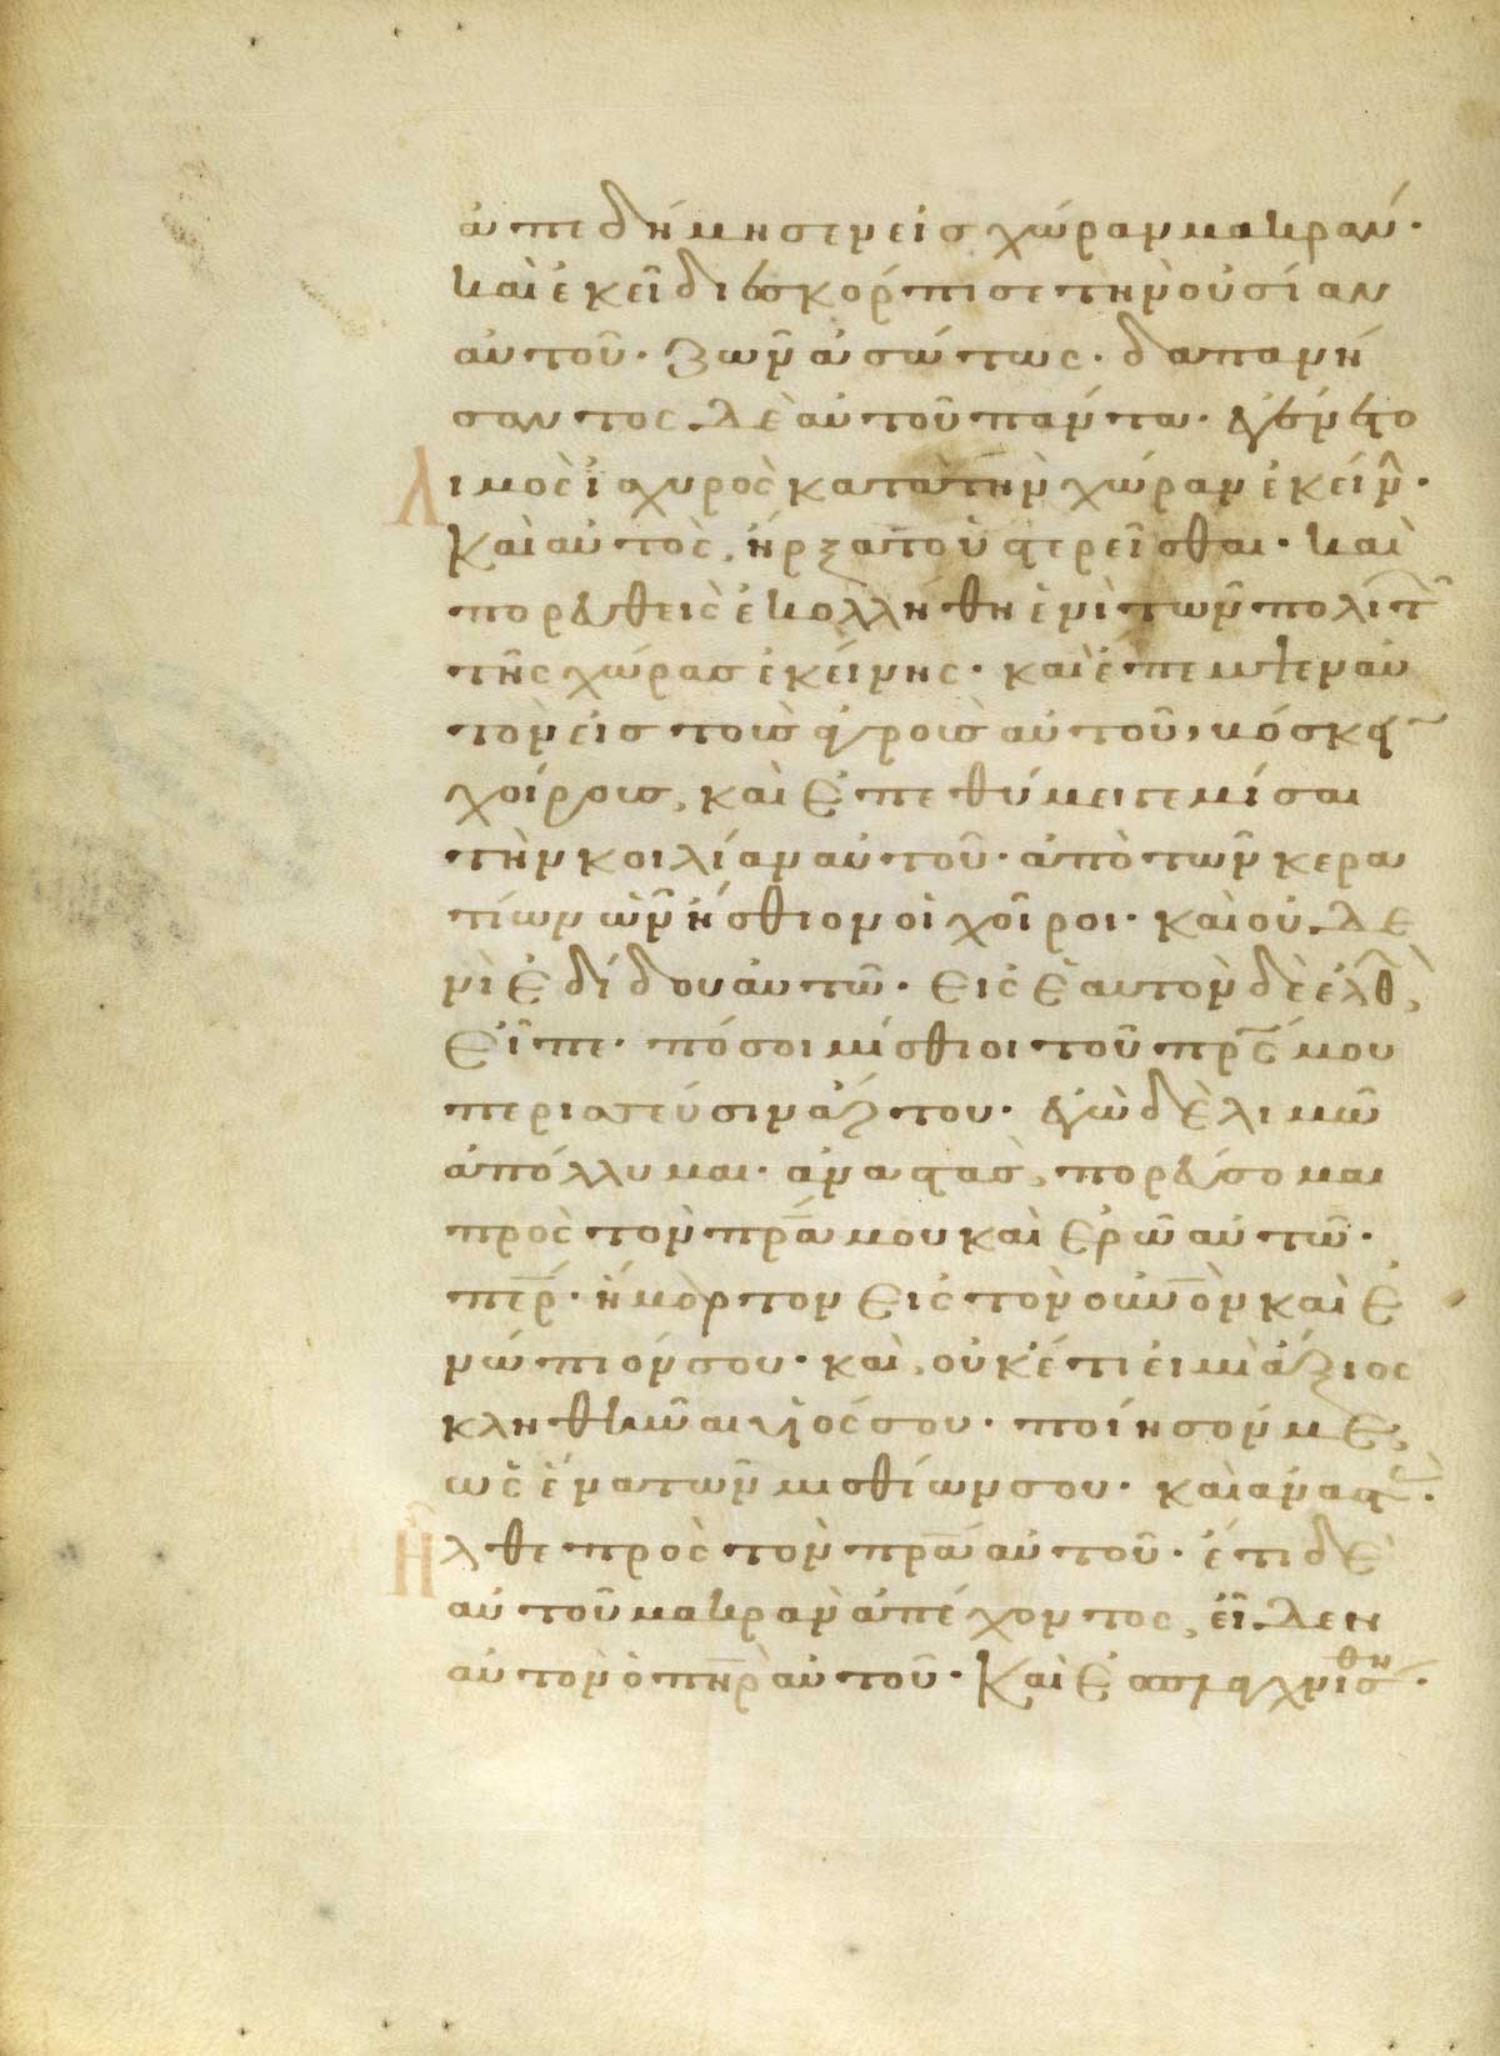 ἀπεδήμησεν εἰς χώραν μακράν·
καὶ ἐκεῖ διεσκόρπισε τὴν οὐσίαν
αὐτοῦ· ζῶν ἀσώτως· δαπανή
σαντος δὲ αὐτοῦ πάντα· ἐγένετο
λιμὸς ἰσχυρὸς κατὰ τὴν χώραν ἐκείν·
καὶ αὐτὸς, ἤρξατο ὑστερεῖσθαι· καὶ
πορευθεὶς ἐκολλήθη ἑνὶ τῶν πολιτ
τῆς χώρας ἐκείνης· καὶ ἔπεμψεν αὐ
τὸν εἰς τοὺς ἀγροὺς αὐτοῦ, βόσκειν
χοίρους, καὶ ἐπεθύμει γεμίσαι
τὴν κοιλίαν αὐτοῦ· ἀπὸ τῶν κερα
τίων ὧν ἤσθιον οἱ χοῖροι· καὶ οὐδε
ὶς ἐδίδου αὐτῶ· εἰς ἑαυτὸν δὲ ἐλθ,
εἶπε· πόσοι μίσθιοι τοῦ πρς μου
περιστεύσιν ἄρτου· ἐγὼ δὲ λιμῶ
ἀπόλλυμαι· ἀναστὰς, πορεύσομαι
πρὸς τὸν πρα μου καὶ ἐρῶ αὐτῶ·
περ· ἥμαρτον εἰς τὸν οὐνὸν καὶ ἐ
νώπιόν σου· καὶ, οὐκέτι εἰμὶ ἄξιος
κληθῆναι υἱός σου· ποίησόν με,
ὡς ἕνα τῶν μισθίων σου· καὶ ἀναστ·
ἦλθε πρὸς τὸν πρα αὐτοῦ· ἔτι δὲ
αὐτοῦ μακρὰν ἀπέχοντος, εἶδεν
αὐτὸν ὁ πηρ αὐτοῦ· Καὶ ἐσπλαγχνίσθη·